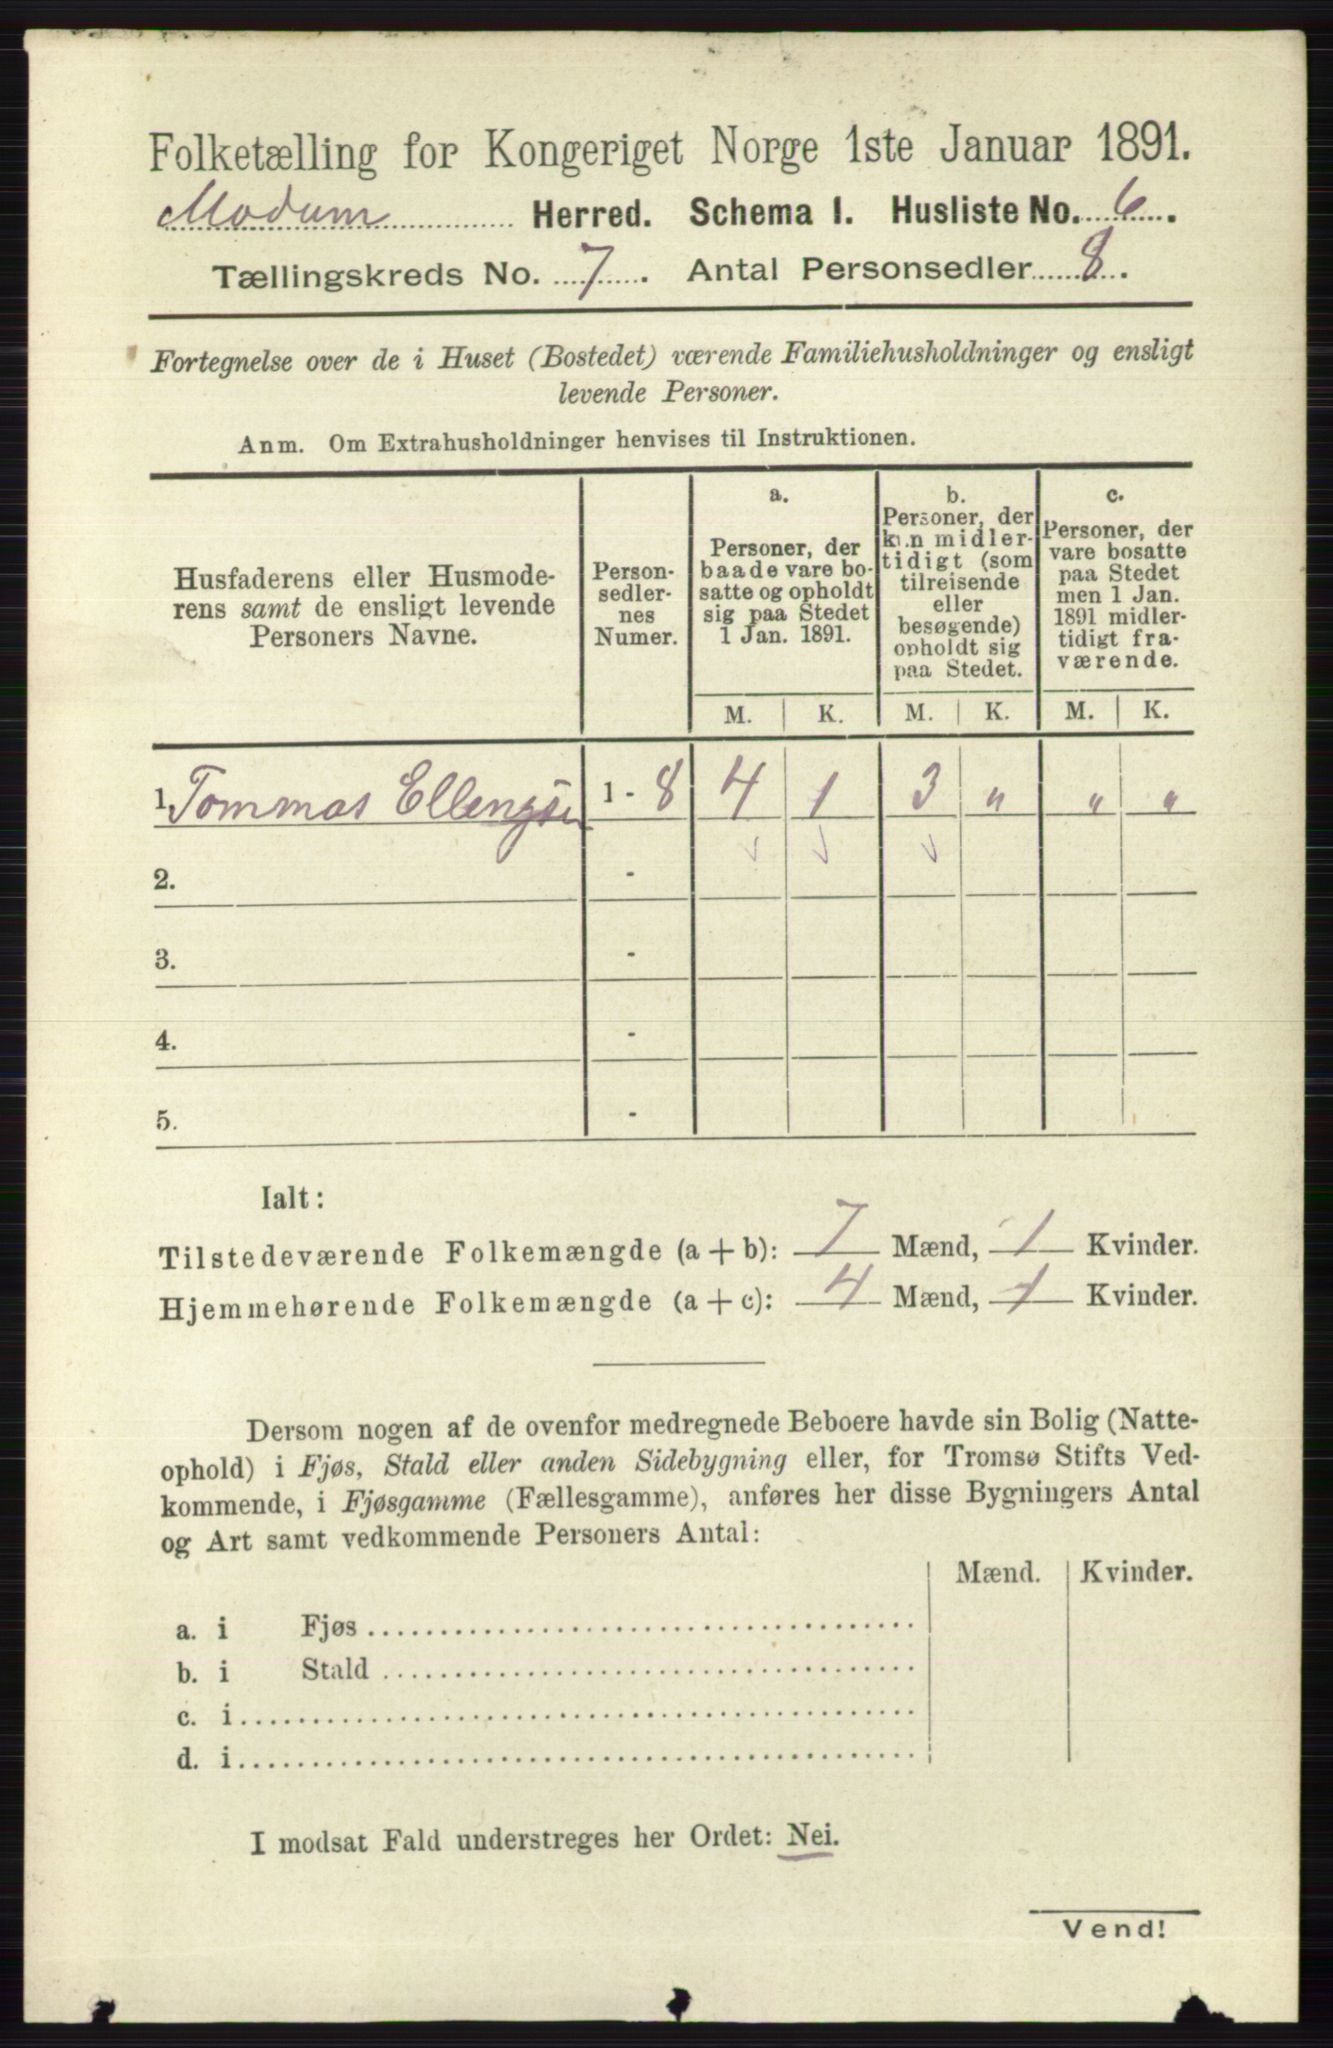 Folketælling for Kongeriget Norge 1ste Januar 1891.
Modum Herred. Schema I. Husliste No. 6.
Tællingskreds No. 7. Antal Personsedler 8.
Fortegnelse over de i Huset (Bostedet) værende Familiehusholdninger og ensligt
levende Personer.
Anm. Om Extrahusholdninger henvises til Instruktionen.
Husfaderens eller Husmode-
rens samt de ensligt levende
Personers Navne.
Person-
sedler-
nes
Numer.
a.
Personer, der
baade vare bo-
satte og opholdt
sig paa Stedet
1 Jan. 1891.
b.
Personer, der
kun midler-
tidigt (som
tilreisende
eller
besøgende)
opholdt sig
paa Stedet.
c.
Personer, der
vare bosatte
paa Stedet
men 1 Jan.
1891 midler-
tidigt fra-
værende.
M. K. M. K. M. K.
1. Tommas Ellengsen 1 - 8 4 1 3 " " "
2. -
3. -
4. -
5. -
Ialt:
Tilstedeværende Folkemængde (a + b): 7 Mænd, 1 Kvinder.
Hjemmehørende Folkemængde (a + c): 4 Mænd, 1 Kvinder.
Dersom nogen af de ovenfor medregnede Beboere havde sin Bolig (Natte-
ophold) i Fjøs, Stald eller anden Sidebygning eller, for Tromsø Stifts Ved-
kommende, i Fjøsgamme (Fællesgamme), anføres her disse Bygningers Antal
og Art samt vedkommende Personers Antal:
Mænd. Kvinder.
a. i Fjøs
b. i Stald
c. i
d. i
I modsat Fald understreges her Ordet: Nei.
Vend!